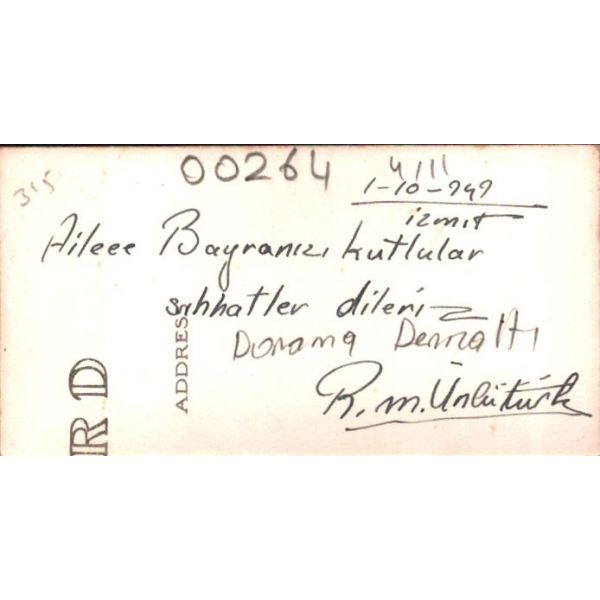 00264
315
1-10-949
izmit
Ailece Bayramızı kutlular
sıhhatler dileriz
Donama Denizaltı
R. m. Ünlütürk
ADDRES
RD